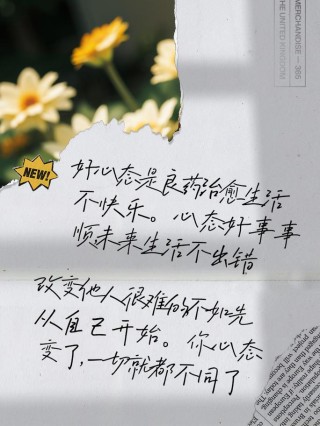 MERCHANDISE — 365
THE UNITED KINGDOM
NEW!
好心态是良药治愈生活
不快乐。心态好事事
顺未来生活不出错
改变他人很难的不如先
从自己开始。你心态
变了,一切就都不同了